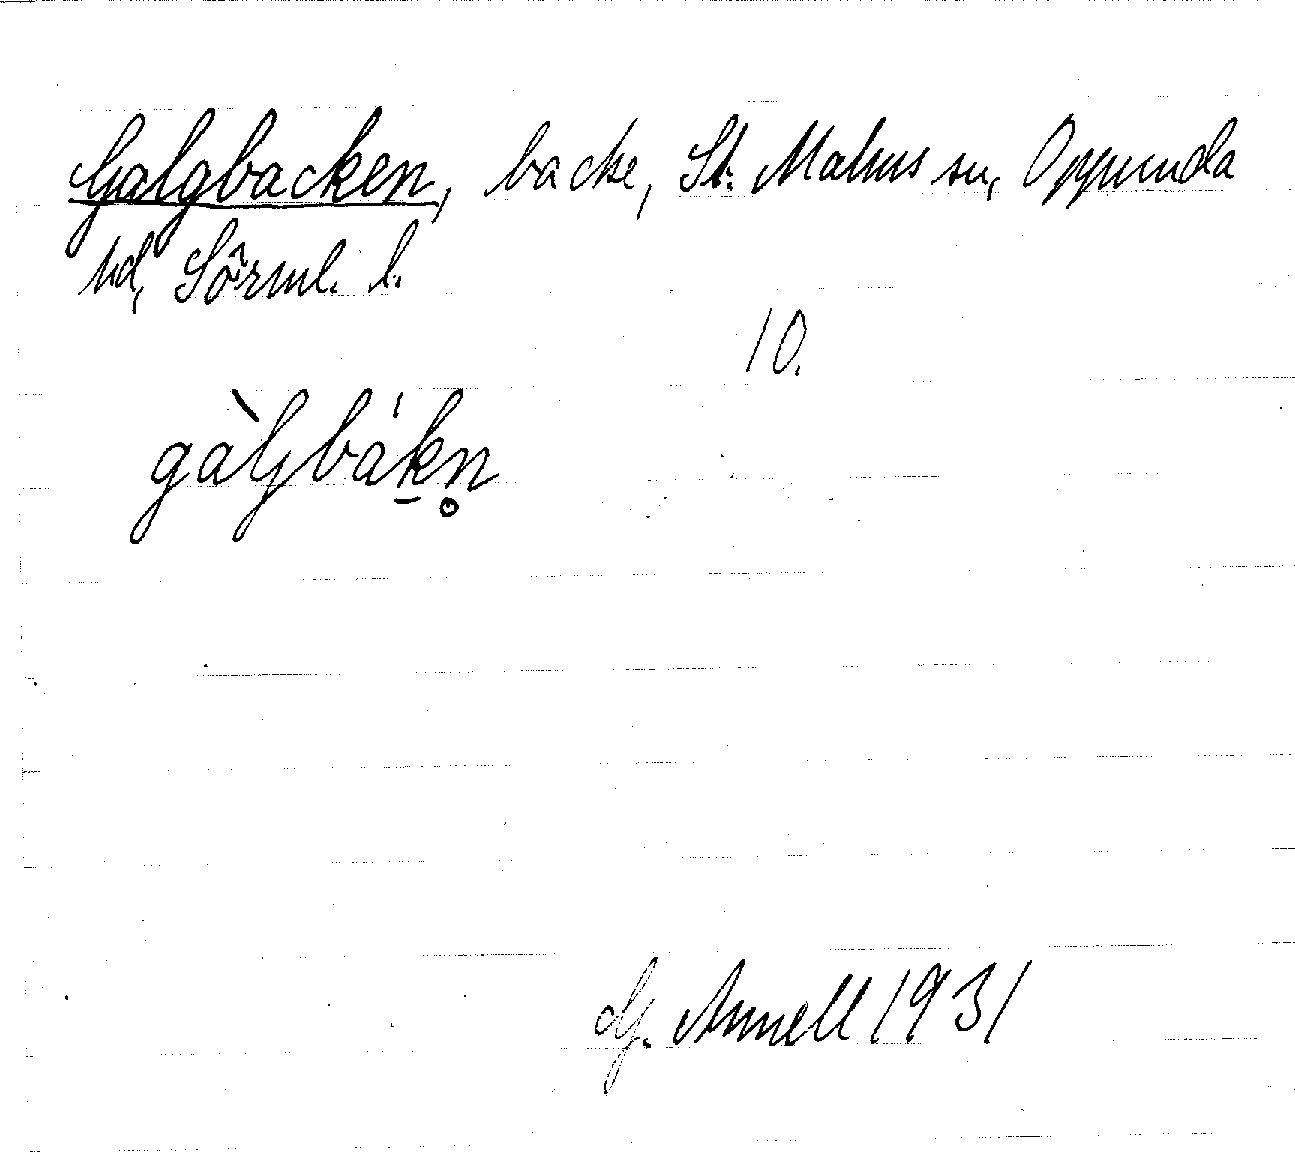 Galgbacken, backe, St. Malms sn, Oppunda
hd, Sörml. l.
10.
gàljbák̲n̥
G. Annell 1931